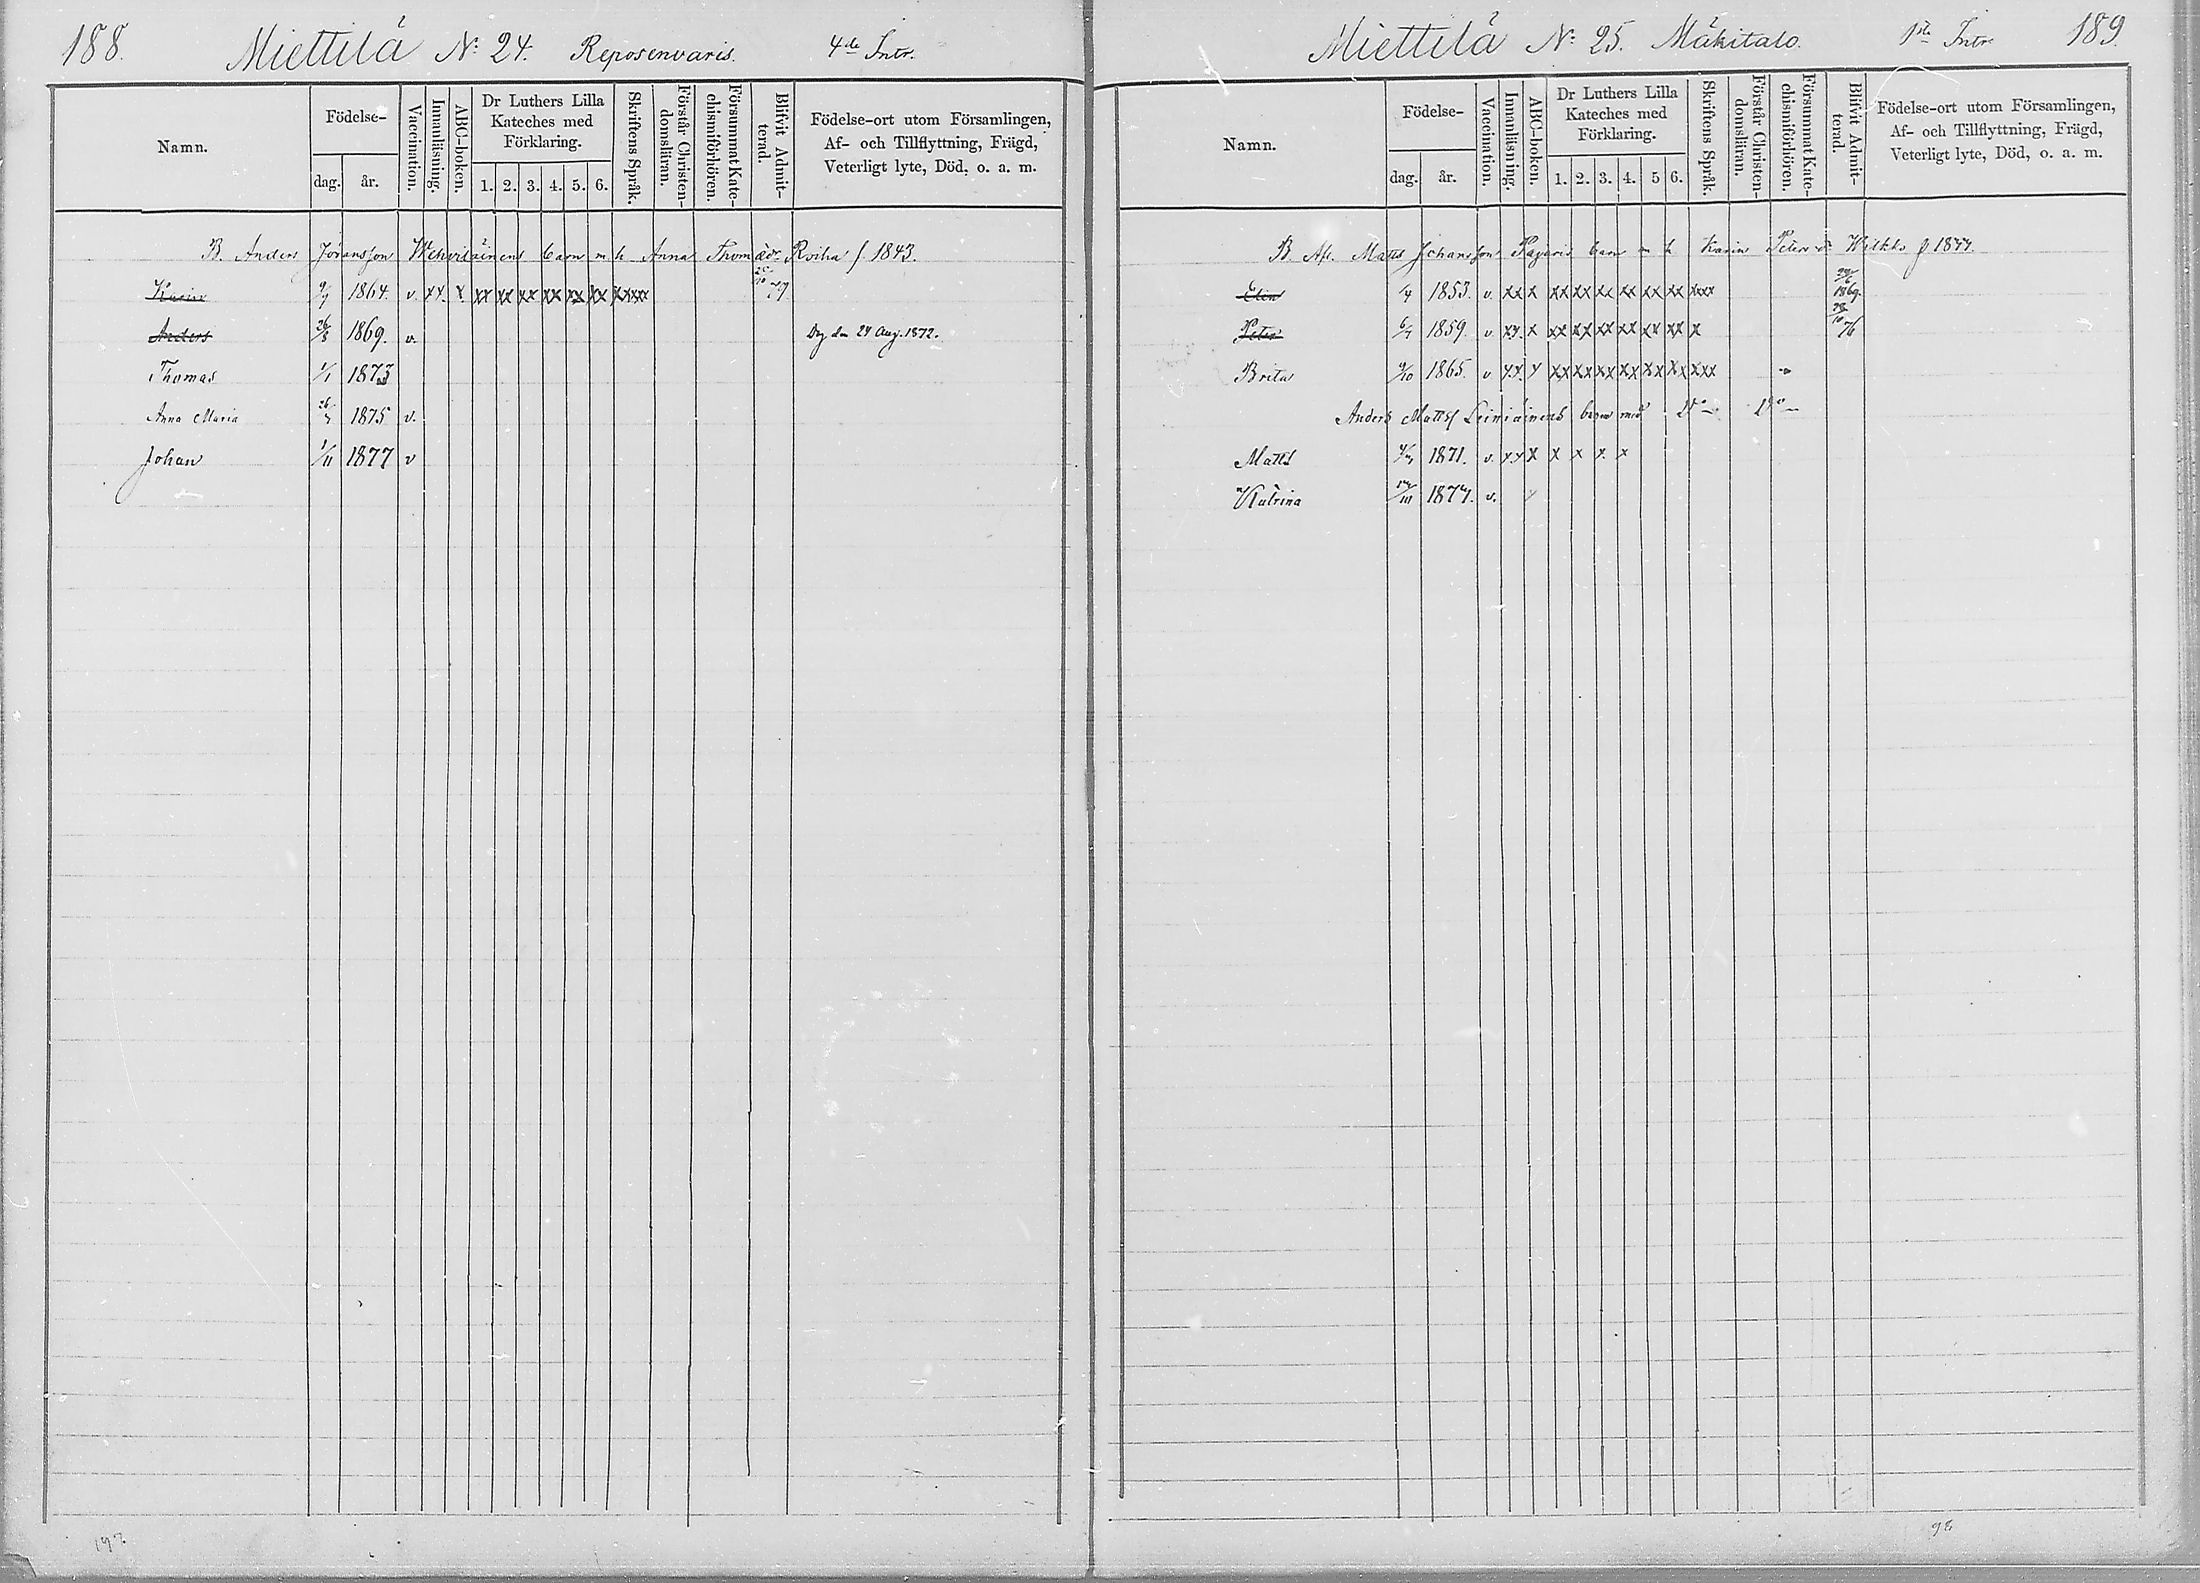 188. Miettilä No 24. Reposenvaris. 4de Intr.
Namn. Födelse- dag. år. Vaccination. Innanläsning. ABC-boken. Dr Luthers Lilla Kateches med Förklaring. 1. 2. 3. 4. 5. 6. Skriftens Språk. Förstår Christendomsläran. Försummat Katechismiförhören. Blifvit Admitterad. Födelse-ort utom Församlingen, Af- och Tillflyttning, Frägd, Veterligt lyte, Död, o. a. m.
B. Anders Jöransson Wehviläinens barn m h Anna Thomædr Roiha f 1843.
Karin 9/7 1864. v. xx x xx xx xx xx xx xx xxxx
Anders 26/8 1869. v. Dog den 24 Aug. 1872.
Thomas 1/1 1873
Anna Maria 26/7 1875 v.
Johan 1/11 1877 v
Miettilä No 25. Mäkitalo. 1sta Intr 189.
Namn. Födelse- dag. år. Vaccination. Innanläsning. ABC-boken. Dr Luthers Lilla Kateches med Förklaring. 1. 2. 3. 4. 5 6. Skriftens Språk. Förstår Christendomsläran. Försummat Katechismiförhören. Blifvit Admitterad. Födelse-ort utom Församlingen, Af- och Tillflyttning, Frägd, Veterligt lyte, Död, o. a. m.
B. Afl. Matts Johansson Pajaris barn m h Karin Petersdr
Elin 1853. v. xx x xx xx xx xx xx xx xxx 1869.
Peter 6/7 1859. v xx. x xx xx xx xx xx xx x 76
Brita 9/10 1865. v xx. x xx xx xx xx xx xx xxx
Anders Mattss Leiniäinens barn med do do
Matts 1871. v. xx x x x x. x
Katrina 1877. v.
98